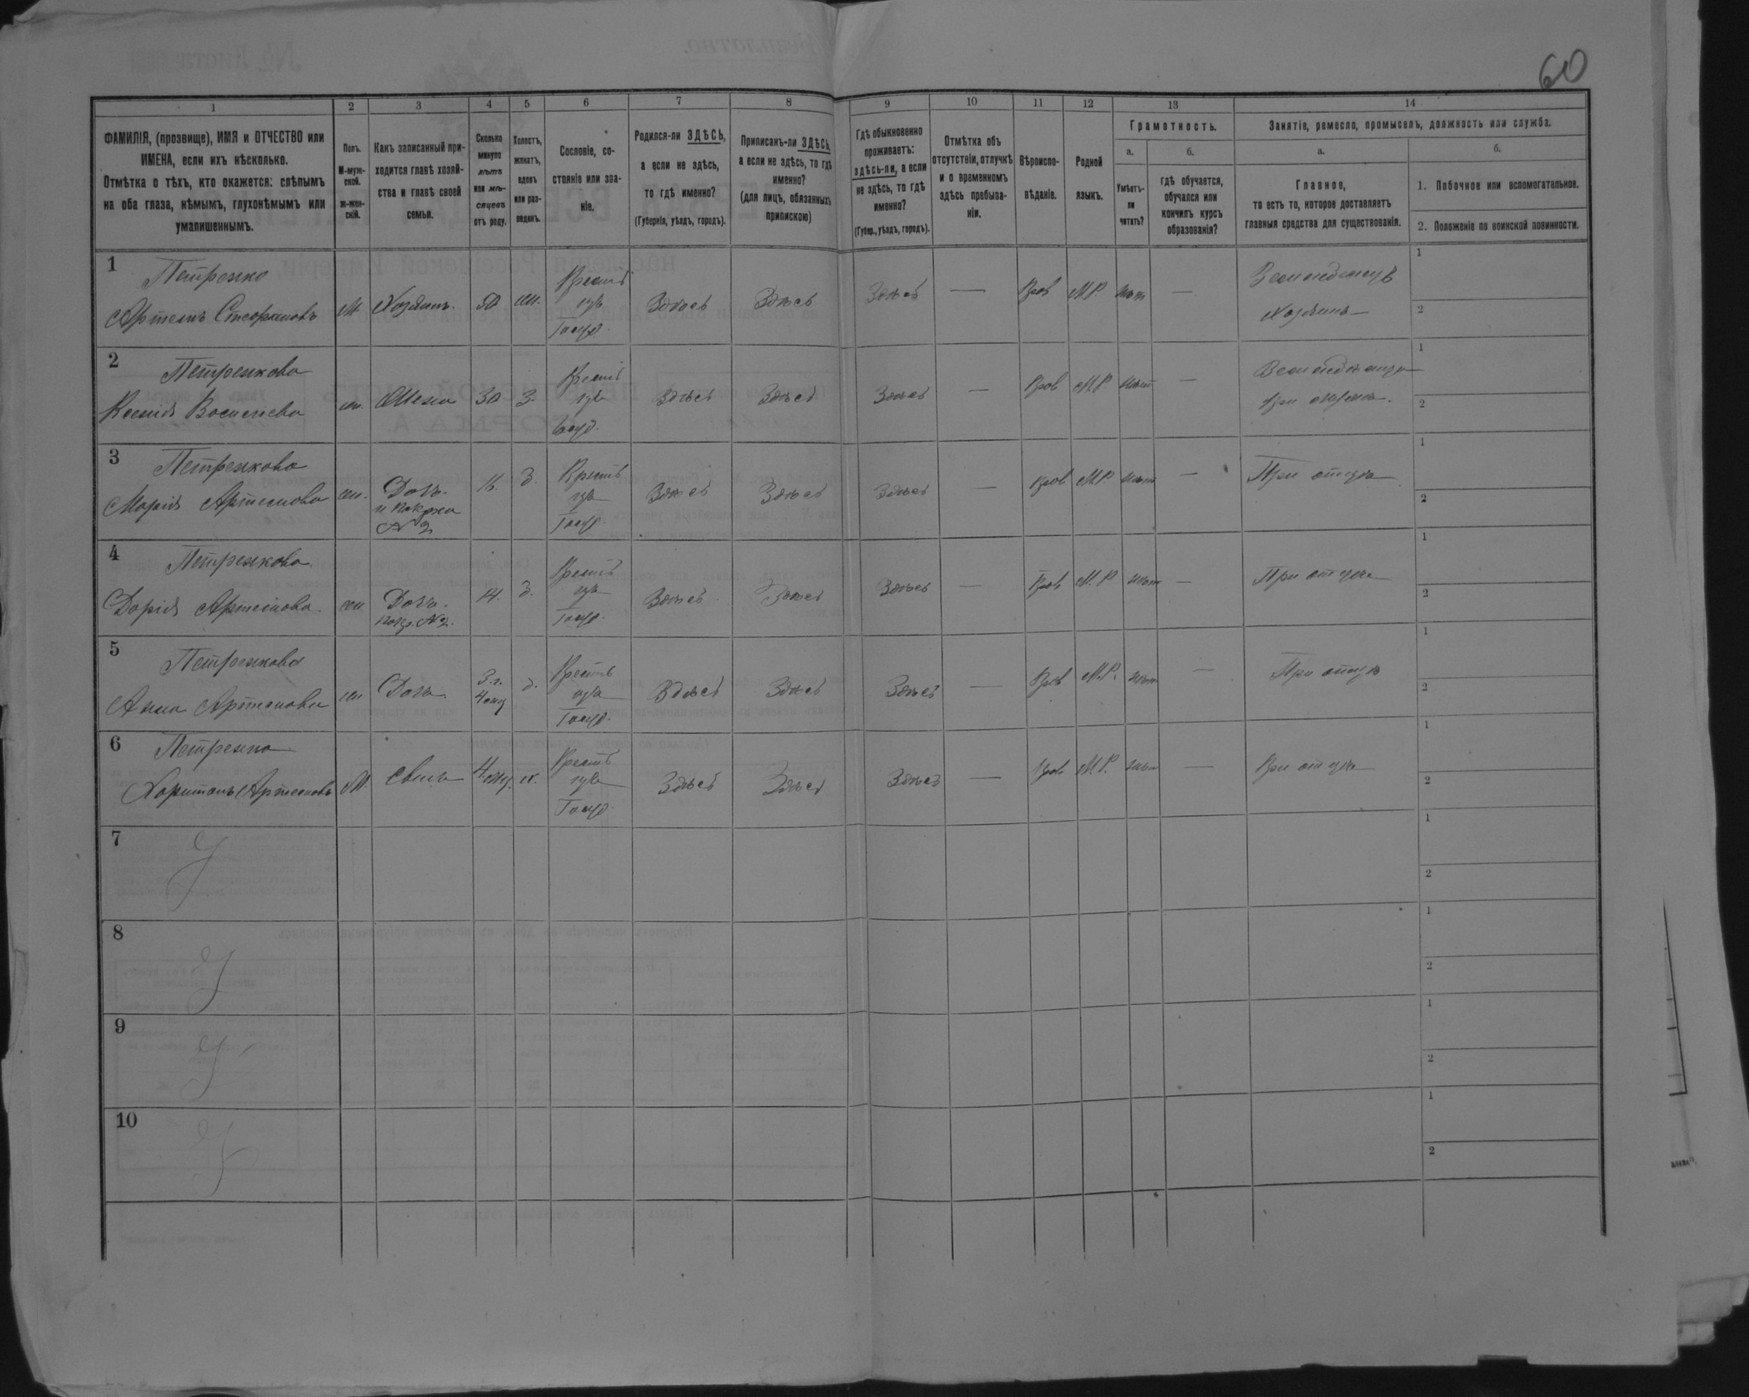 60
1
2
3
4
5
6
7
8
9
10
11
12
13
14
ФАМИЛІЯ, (прозвище), ИМЯ и ОТЧЕСТВО или
ИМЕНА, если ихъ нѣсколько.
Отмѣтка о тѣхъ, кто окажется: слѣпымъ
на оба глаза, нѣмымъ, глухонѣмымъ или
умалишеннымъ.
Полъ.
М-муж-
ской.
Ж-жен-
скій.
Какъ записанный при-
ходится главѣ хозяй-
ства и главѣ своей
семьи.
Сколько
минуло
лѣтъ
или мѣ-
сяцевъ
отъ роду.
Холостъ,
женатъ,
вдовъ
или раз-
веденъ.
Сословіе, со-
стояніе или зва-
ніе.
Родился-ли ЗДѢСЬ,
а если не здѣсь,
то гдѣ именно?
(Губернія, уѣздъ, городъ).
Приписанъ-ли ЗДѢСЬ,
а если не здѣсь, то гдѣ
именно?
(для лицъ, обязанныхъ
припискою)
Гдѣ обыкновенно
проживаетъ:
здѣсь-ли, а если
не здѣсь, то гдѣ
именно?
(Губер., уѣздъ, городъ).
Отмѣтка объ
отсутствіи, отлучкѣ
и о временномъ
здѣсь пребыва-
ніи.
Вѣроиспо-
вѣданіе.
Родной
языкъ.
Грамотность.
а.
Умѣетъ-
ли
читать?
б.
гдѣ обучается,
обучался или
кончилъ курсъ
образованія?
Занятіе, ремесло, промыселъ, должность или служба.
а.
Главное,
то есть то, которое доставляетъ
главныя средства для существованія.
б.
1. Побочное или вспомогательное.
2. Положеніе по воинской повинности.
1
Петренко
Артемъ Стефановъ
М
Хозяинъ
50
Крестъ
изъ
Госуд.
Здѣсь
Здѣсь
Здѣсь
—
Прав
М.Р.
нѣт
—
Земледѣлецъ
Хозяинъ
1
2
2
Петренкова
Ксенія Василева
ж.
Жена
30
З.
Крестъ
изъ
Госуд.
Здѣсь
Здѣсь
Здѣсь
—
Прав
М.Р
нѣт
—
При мужѣ.
1
2
3
Петренкова
Марія Артемова
ж.
Дочь
№ 2
д.
Крестъ
изъ
Госуд
Здѣсь
Здѣсь
Здѣсь
—
Прав
М.Р
нѣт
—
При отцѣ
1
2
4
Петренкова
Дарія Артемова
ж
Дочь.
№ 2.
д.
Крестъ
изъ
Госуд.
Здѣсь
Здѣсь
Здѣсь
—
Прав
М.Р
нѣт
—
При отцѣ
1
2
5
Петренкова
Анна Артемова
ж
Дочь
3 г.
4 мц
д.
Крестъ
изъ
Госуд.
Здѣсь
Здѣсь
Здѣсь
—
Прав
М.Р.
нѣт
—
При отцѣ
1
2
6
Петренко
Харитонъ Артемовъ
М.
Сынъ
4 мц.
х.
Крестъ
изъ
Госуд.
Здѣсь
Здѣсь
Здѣсь
—
Прав
М.Р.
нѣт
—
При отцѣ
1
2
7
1
2
8
1
2
9
1
2
10
1
2